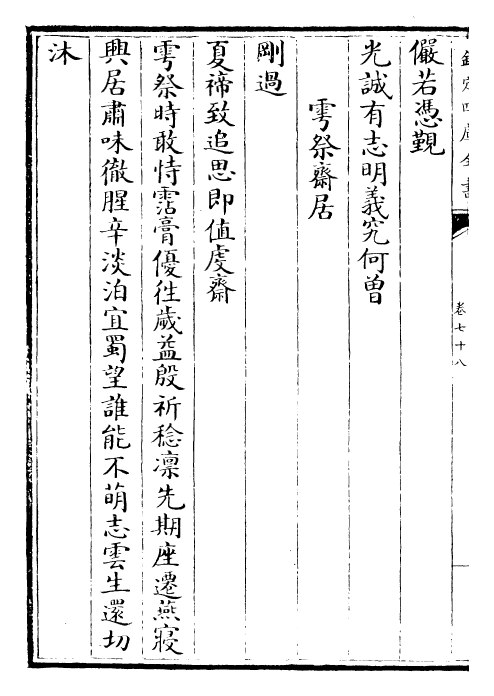 欽定四庫全書
卷七十八
儼若憑觀
光誠有志明義究何曽
雩祭齋居
剛過
夏禘致追思即值虔齋
雩祭時敢恃霑膏優徃歲益殷祈稔凛先期座遷燕寢
興居肅味徹腥辛淡泊宜蜀望誰能不萌志雲生還切
沐